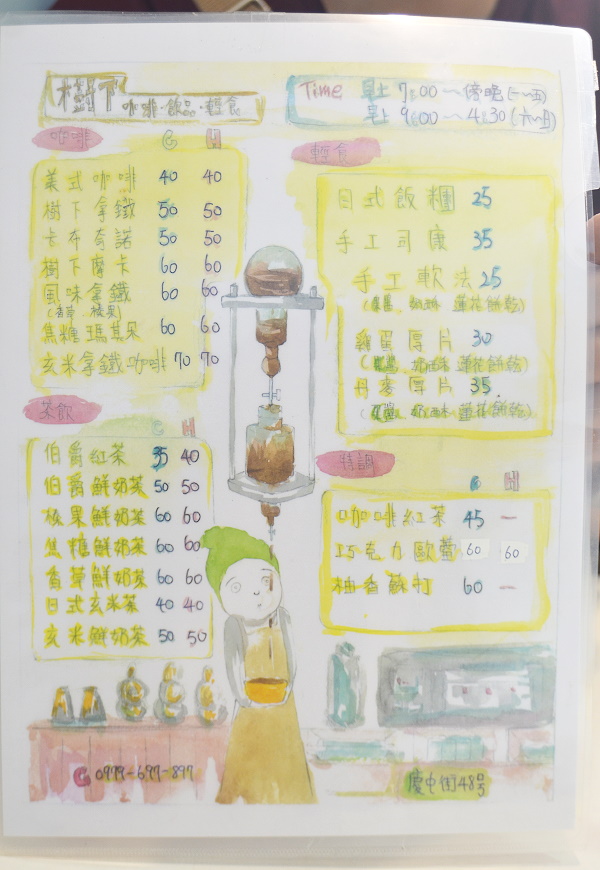 樹下
咖啡·飲品·輕食
Time 早上 7:00 ~ 傍晚 (一~五)
早上 9:00 ~ 4:30 (六~日)
咖啡 C H
美式咖啡 40 40
樹下拿鐵 50 50
卡布奇諾 50 50
樹下摩卡 60 60
風味拿鐵 60 60
(香草、榛果)
焦糖瑪其朵 60 60
玄米拿鐵咖啡 70 70
茶飲 C H
伯爵紅茶 35 40
伯爵鮮奶茶 50 50
榛果鮮奶茶 60 60
焦糖鮮奶茶 60 60
香草鮮奶茶 60 60
日式玄米茶 40 40
玄米鮮奶茶 50 50
輕食
日式飯糰 25
手工司康 35
手工軟法 25
(果醬、奶酥 蓮花餅乾)
雞蛋厚片 30
(果醬、奶酥 蓮花餅乾)
丹麥厚片 35
(果醬、奶酥 蓮花餅乾)
特調
C H
咖啡紅茶 45 —
巧克力歐蕾 60 60
柚香蘇打 60 —
0979-697-897
慶中街48號